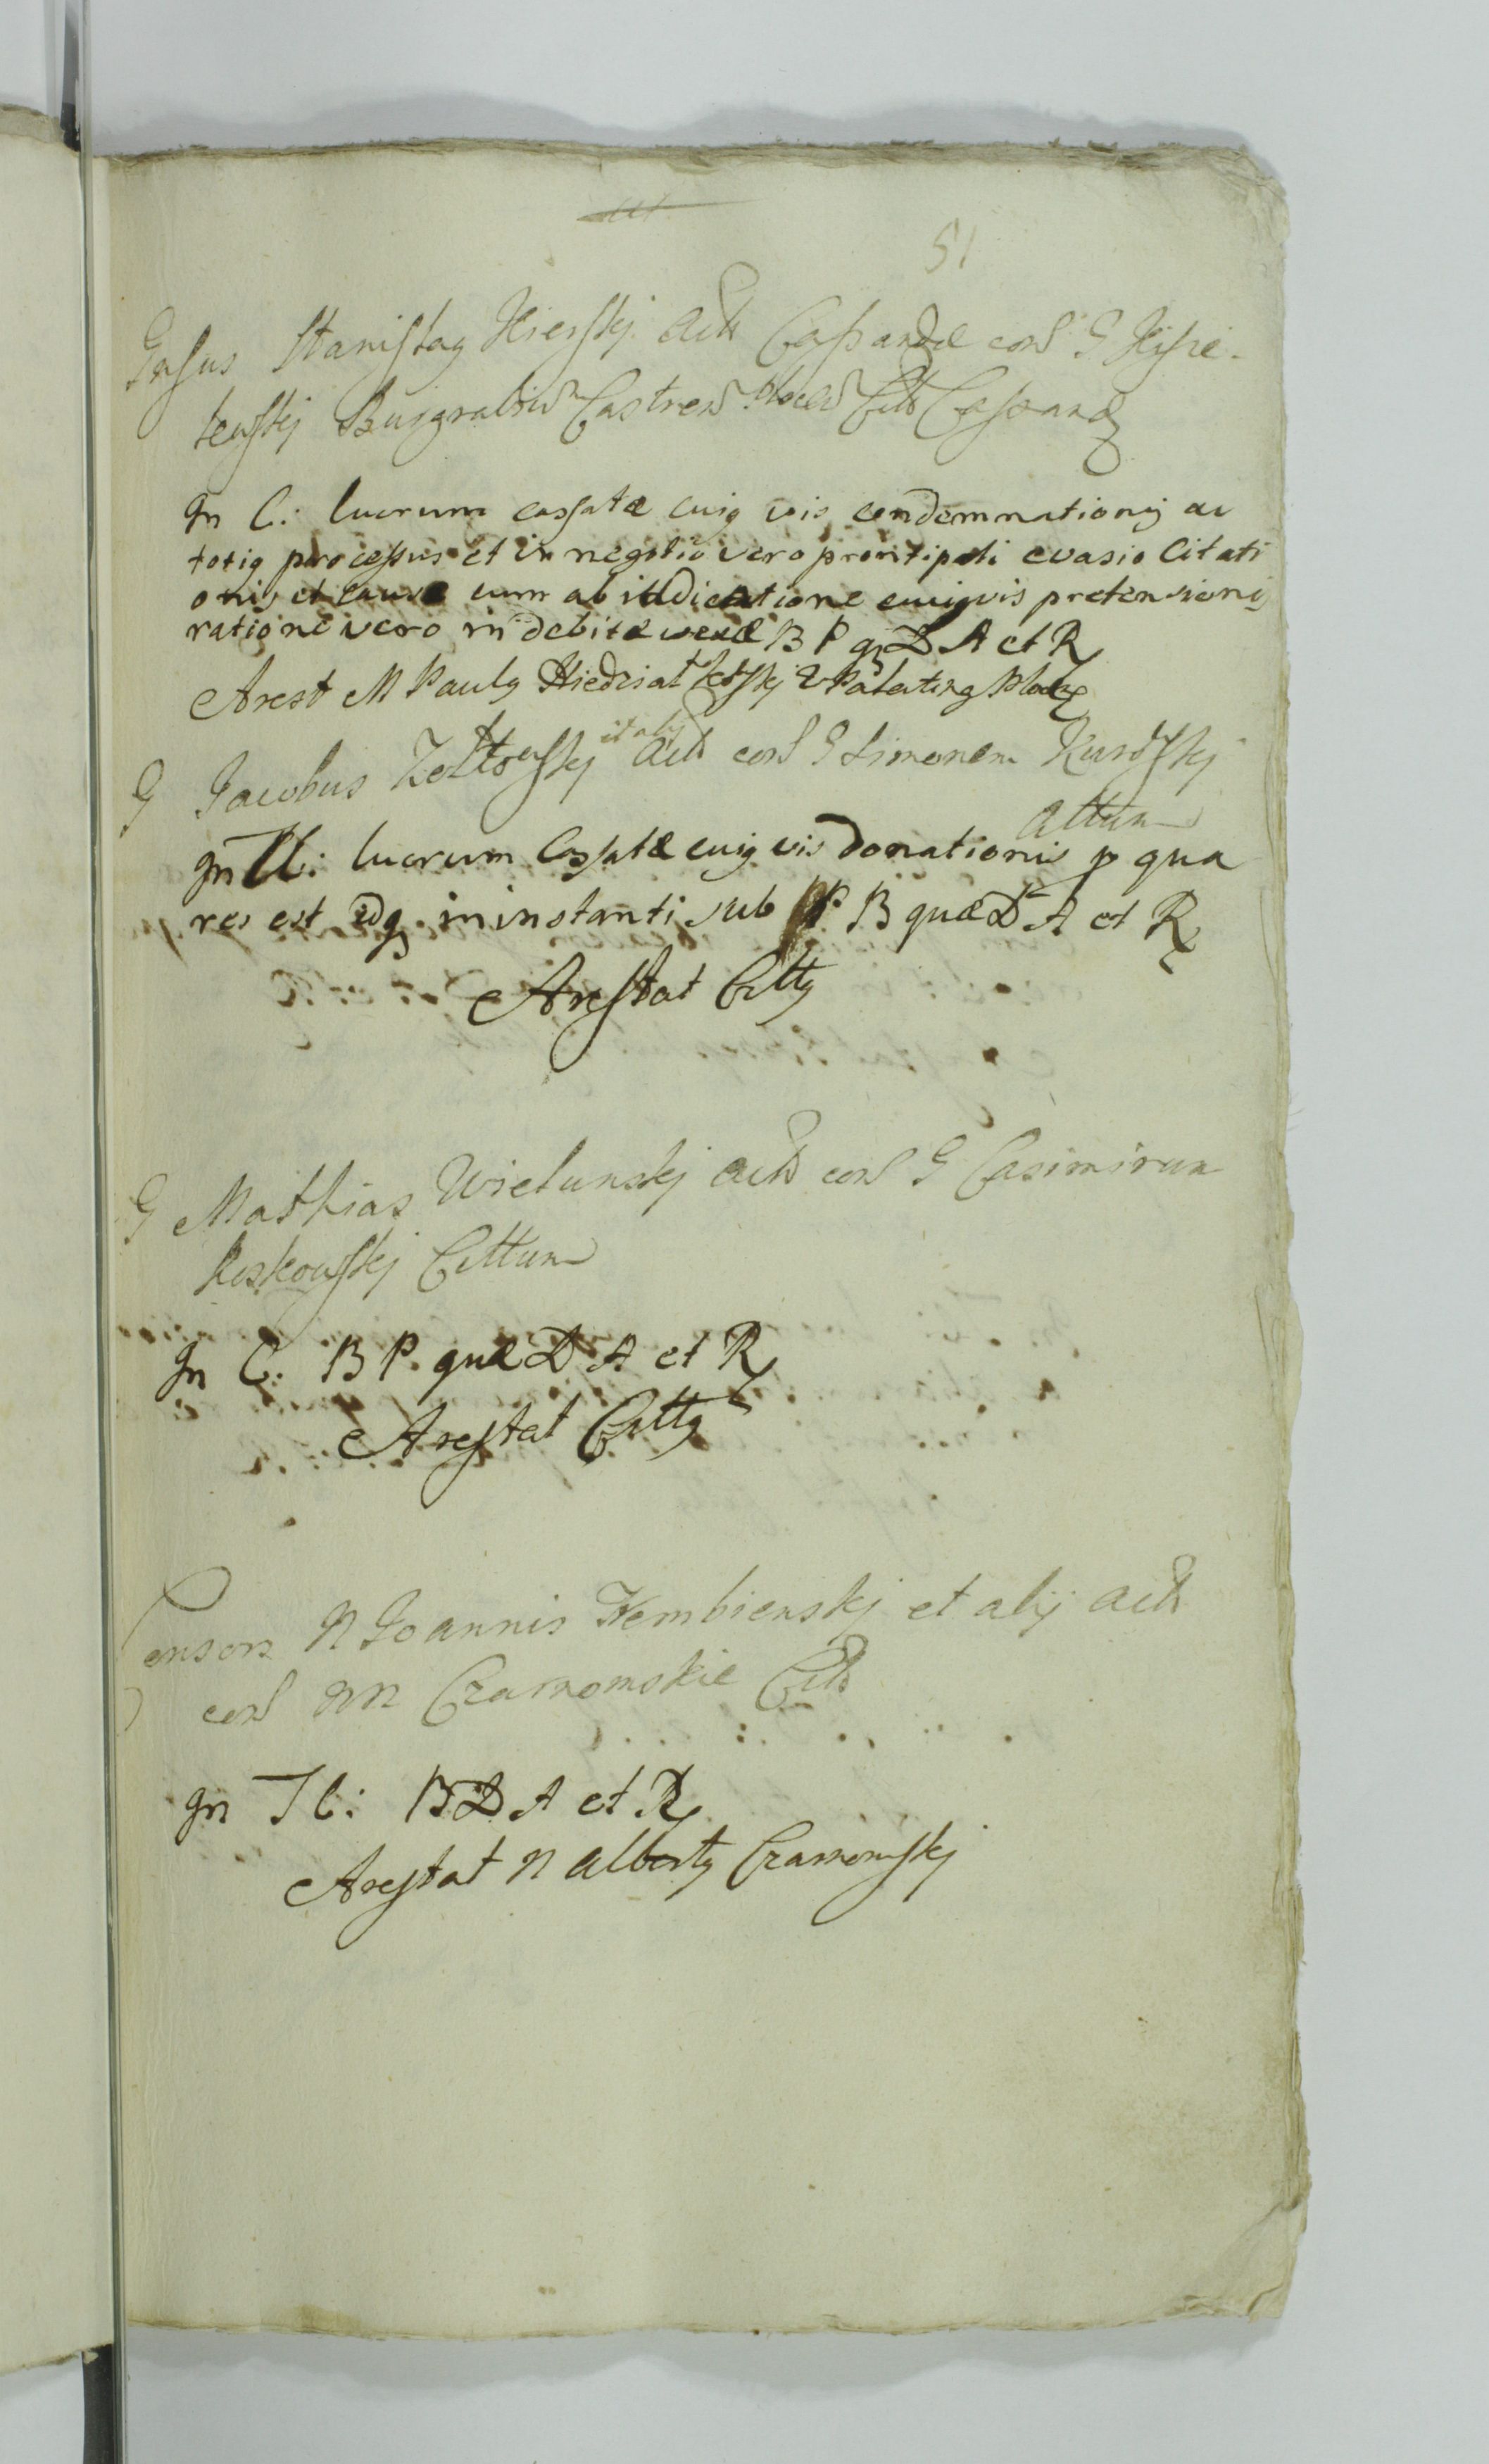 51
Gnsus Stanislaq Kierskj Actt Cassandæ con G Kisie-
leuskj Burgrabiu Castren Plocen Citt Cassand
In C: lucrum cassatæ cuiq vis condemnationij ac
totiq processus et in negotio vero printipali evasio Citati
onis et causæ cum ab iudicatione cuiqvis pretensionij
ratione vero indebitæ vexæ B P q D A et R
Arest M Paulq Niedzial kowskj V Palating Plocq
G Jacobus Zołtowskj et alij Actt con G Simonem Kurowskj
Cittum
In Tl: lucrum Cassatæ cuiq vis donationis p qua
res est idq in instanti sub P B quæ D A et R
Arestat Cittq
G Mathias Wielunskj Actt con G Casimirum
Koskowskj Cittum
In C: B P. quæ D A et R
Arestat Cittq
Consors N Joannis Kembienskj et alij Actt
con NN Czarnomskie Citt
In Tl: B D A et R
Arestat N Albertq Czarnomskj